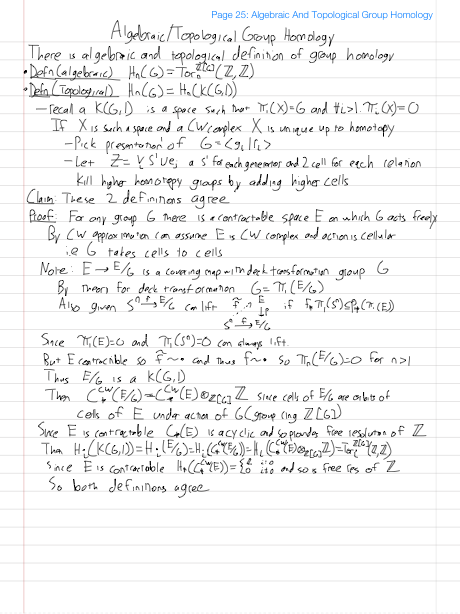 Page 25: Algebraic And Topological Group Homology
Algebraic/Topological Group Homology
There is algebraic and topological definition of group homology
• Defn (algebraic) Hₙ(G) = Torₙ^{ℤ[G]}(ℤ,ℤ)
• Defn (Topological) Hₙ(G) = Hₙ(K(G,1))
– recall a K(G,1) is a space such that π₁(X)=G and ∀i>1: πᵢ(X)=0
If X is such a space and a CW complex X is unique up to homotopy
– Pick presentation of G = <gᵢ|rᵢ>
– Let Z = ⋁ S¹ ∪ eⱼ a S¹ for each generator and 2 cell for each relation
Kill higher homotopy groups by adding higher cells
Claim: These 2 definitions agree
Proof: For any group G there is a contractable space E on which G acts freely
By CW approximation can assume E is CW complex and action is cellular
i.e G takes cells to cells
Note: E → E/G is a covering map with deck transformation group G
By theory for deck transformation G = π₁(E/G)
Also given Sⁿ →f E/G can lift f̃ if f_* π₁(Sⁿ) ≤ p_*(π₁(E))
Sⁿ →f E/G
Since π₁(E)=0 and π₁(Sⁿ)=0 can always lift.
But E contractible so f̃ ~ • and thus f ~ • so πₙ(E/G)=0 for n>1
Thus E/G is a K(G,1)
Then C_*^{CW}(E/G) = C_*^{CW}(E) ⊗_{ℤ[G]} ℤ since cells of E/G are orbits of
cells of E under action of G (group ring ℤ[G])
Since E is contractable C_*(E) is acyclic and so provides free resolution of ℤ
Then Hᵢ(K(G,1)) = Hᵢ(E/G) = Hᵢ(C_*^{CW}(E/G)) = Hᵢ(C_*^{CW}(E) ⊗_{ℤ[G]} ℤ) = Torᵢ^{ℤ[G]}(ℤ,ℤ)
Since E is contractable Hᵢ(C_*^{CW}(E)) = {ℤ i=0 0 i≠0 and so is free res of ℤ
So both definitions agree